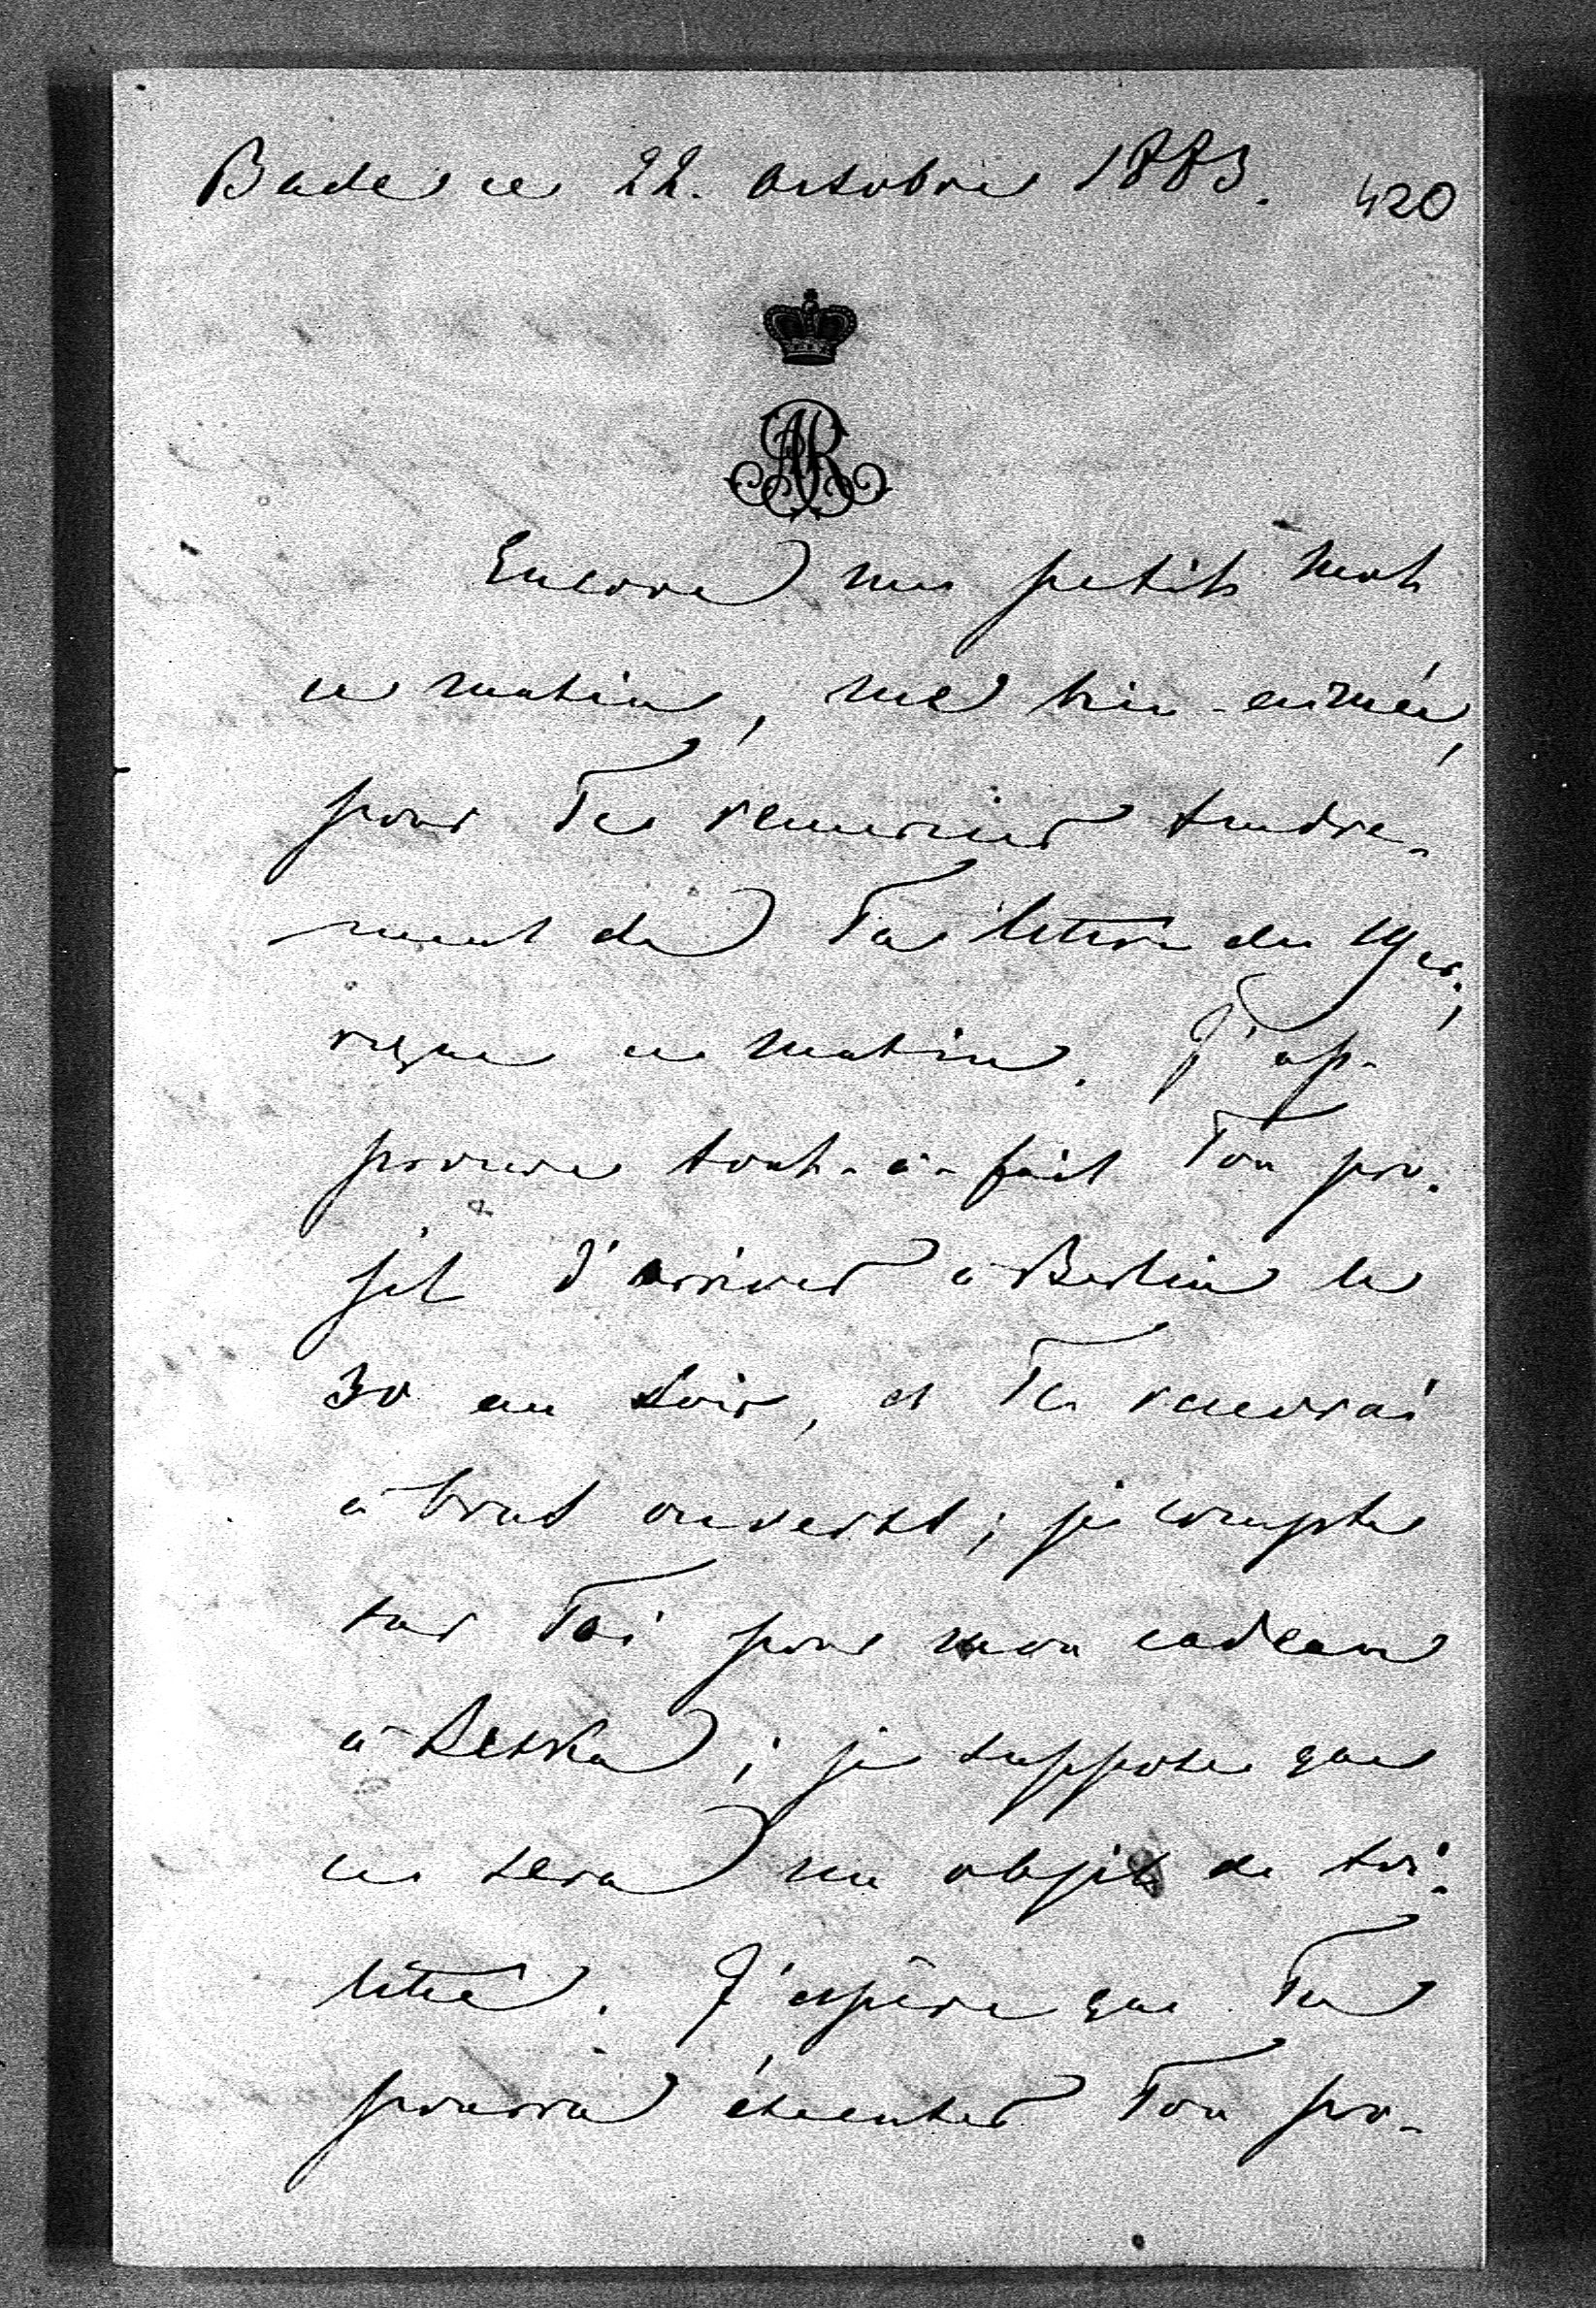 Bade ce 22. octobre 1883. 420
AR
Encore un petit mot
ce matin, ma bien-aimée,
pour Te remercier tendre-
ment de Ta lettre du 19 cr.,
reçue ce matin. J'ap-
prouve tout-à-fait Ton pro-
jet d'arriver à Berlin le
30 au soir, et Te recevrai
à bras ouverts; je compte
sur Toi pour mon cadeau
à ; je suppose que
ce sera un objet de toi-
lette. J'espère que Tu
pourra éxecuter Ton pro-